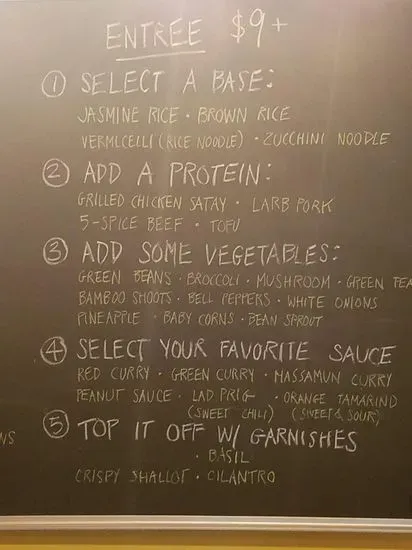 ENTRÉE $9+
① SELECT A BASE:
JASMINE RICE · BROWN RICE
VERMICELLI (RICE NOODLE) · ZUCCHINI NOODLE
② ADD A PROTEIN:
GRILLED CHICKEN SATAY · LARB PORK
5-SPICE BEEF · TOFU
③ ADD SOME VEGETABLES:
GREEN BEANS · BROCCOLI · MUSHROOM · GREEN PEA
BAMBOO SHOOTS · BELL PEPPERS · WHITE ONIONS
PINEAPPLE · BABY CORNS · BEAN SPROUT
④ SELECT YOUR FAVORITE SAUCE
RED CURRY · GREEN CURRY · MASSAMUN CURRY
PEANUT SAUCE · LAD PRIG · ORANGE TAMARIND
(SWEET CHILI) (SWEET & SOUR)
⑤ TOP IT OFF W/ GARNISHES
NS
· BASIL
CRISPY SHALLOT · CILANTRO